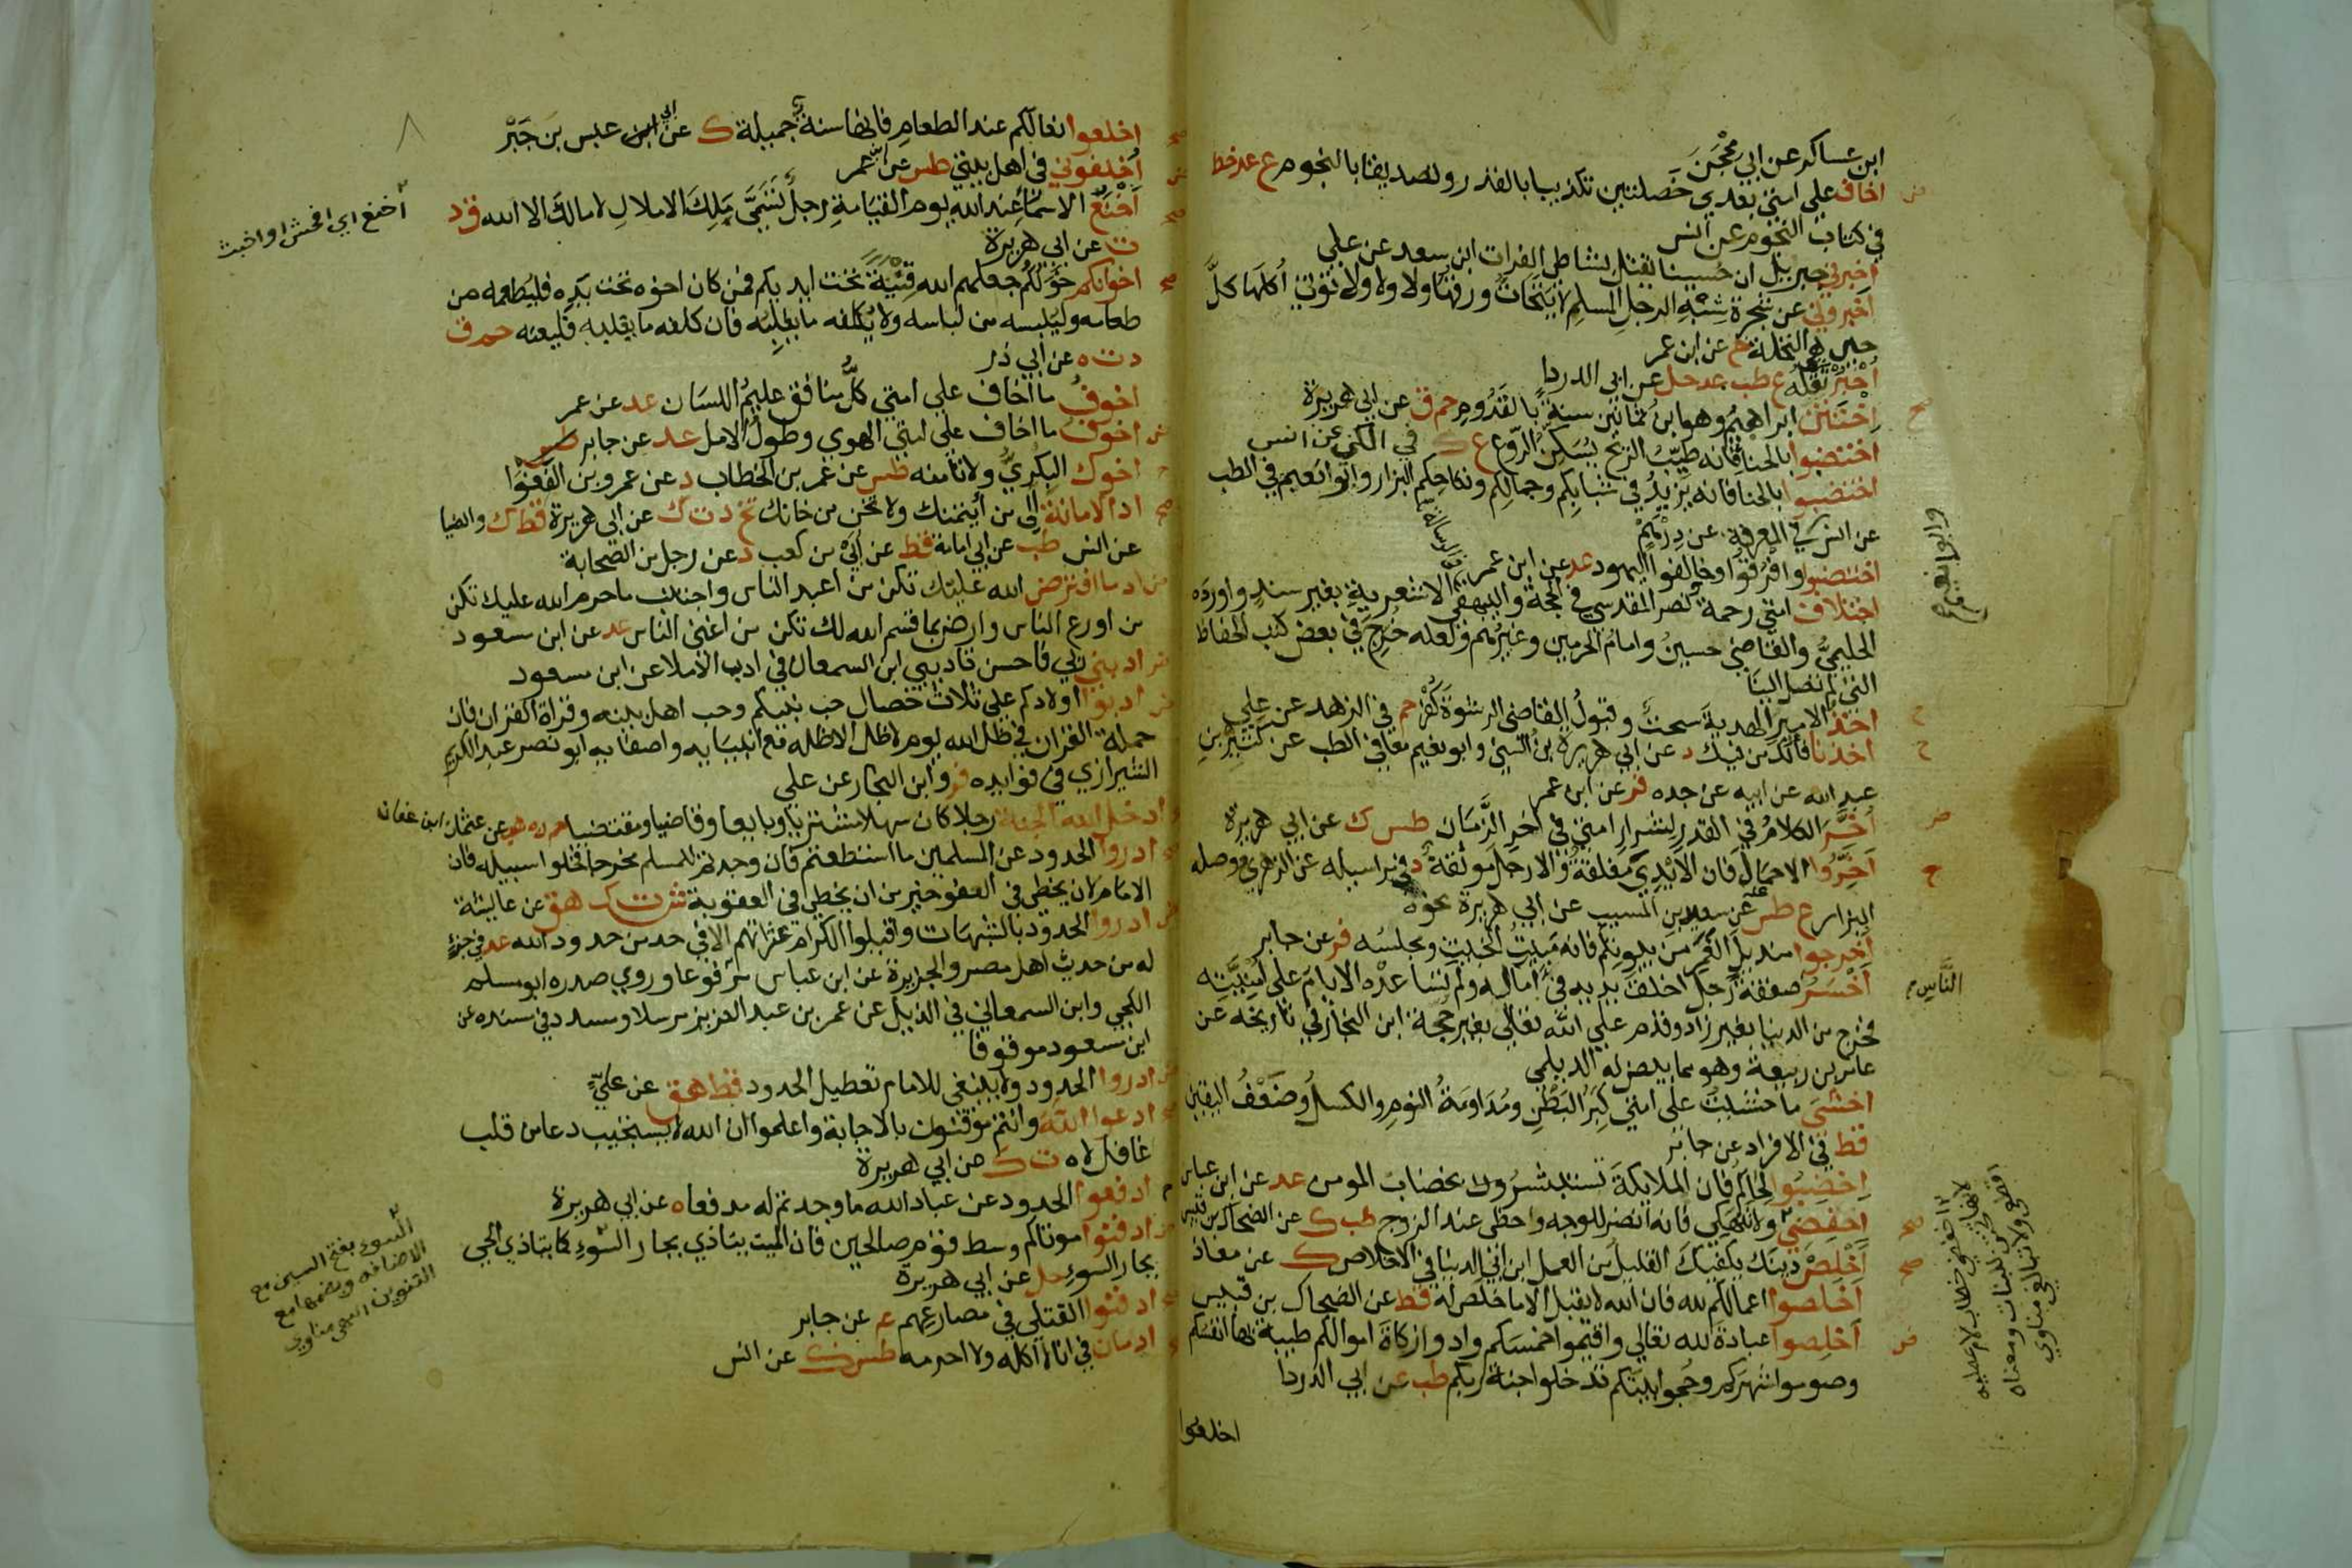 ابن عساكر عن ابي محجن
اخاف على امتي بعدي خصلتين تكذيبا بالقدر وتصديقا بالنجوم ع عد خط
في كتاب النجوم عن انس
اخبرني جبريل ان حسينا يقتل بشاطي الفرات ابن سعد عن علي
اخبروني عن شجرة شبه الرجل المسلم لا يتحات ورقها ولا ولا ولا تؤتي اكلها كل
حين هي النخلة خ عن ابن عمر
اخبر تقله ع طب عد حل عن ابي الدردا
اختتن ابراهيم وهو ابن ثمانين سنة بالقدوم حم ق عن ابي هريرة
اختضبوا بالحنا فانه طيب الريح يسكن الروع ع ك في الكنى عن انس
اختضبوا بالحنا فانه يزيد في شبابكم وجمالكم ونكاحكم البزار وابو نعيم في الطب
عن انس في المعرفة عن درهم
وابو نعيم
اختضبوا وافرقوا وخالفوا اليهود عد عن ابن عمر
اختلاف امتي رحمة نصر المقدسي في الحجة والبيهقي في الرسالة الاشعرية بغير سند واورده
الحليمي والقاضي حسين وامام الحرمين وغيرهم ولعله خرج في بعض كتب الحفاظ
التي لم تصل الينا
اخذ الامير الهدية سحت وقبول القاضي الرشوة كفر حم في الزهد عن علي
اخذنا فالك من فيك د عن ابي هريرة ابن السني وابو نعيم معا في الطب عن كثير بن
عبد الله عن ابيه عن جده فر عن ابن عمر
اخر الكلام في القدر لشرار امتي في اخر الزمان طس ك عن ابي هريرة
اخروا الاحمال فان الايدي مغلقة والارجل موثقة د في مراسيله عن الزهري ووصله
البزار ع طس عنه عن سعيد بن المسيب عن ابي هريرة نحوه
اخرجوا منديل الغمر من بيوتكم فانه مبيت الخبيث ومجلسه فر عن جابر
الناس
اخسر صفقة رجل اخلق يديه في اماله ولم تساعده الايام على امنيته
فخرج من الدنيا بغير زاد وقدم على الله تعالى بغير حجة ابن النجار في تاريخه عن
عامر بن ربيعة وهو مما بيض له الديلمي
اخشى ما خشيت على امتي كبر البطن ومداومة النوم والكسل وضعف اليقين
قط في الافراد عن جابر
اخضبوا لحاكم فان الملايكة تستبشر بخضاب المومن عد عن ابن عباس
اخفضي ولا تنهكي فانه انضر للوجه واحظى عند الزوج طب ك عن الضحاك بن قيس
اخلص دينك يكفيك القليل من العمل ابن ابي الدنيا في الاخلاص ك عن معاذ
اخلصوا اعمالكم لله فان الله لا يقبل الا ما خلص له قط عن الضحاك بن قيس
اخلصوا عبادة لله تعالي واقيموا خمسكم وادوا زكاة اموالكم طيبة بها انفسكم
وصوموا شهركم وحجوا بيتكم تدخلوا جنة ربكم طب عن ابي الدردا
اخفضي خطاب لام عطية
اخلعوا
اخلعوا نعالكم عند الطعام فانها سنة جميلة ك عن ابي عبس بن جبر
اخلفوني في اهل بيتي طس عن ابن عمر
اخنع الاسماء عند الله يوم القيامة رجل تسمى ملك الاملاك لا مالك الا الله ق د
اخنع اي افحش او اخبث
ت عن ابي هريرة
اخوانكم خولكم جعلهم الله قنية تحت ايديكم فمن كان اخوه تحت يده فليطعمه من
طعامه وليلبسه من لباسه ولا يكلفه ما يغلبه فان كلفه ما يغلبه فليعنه حم ق
د ت ه عن ابي ذر
اخوف ما اخاف على امتي كل منافق عليم اللسان عد عن عمر
اخوف ما اخاف على امتي الهوى وطول الامل عد عن جابر
اخوك البكري ولا تامنه طس عن عمر بن الخطاب د عن عمرو بن الفغوا
اد الامانة الى من ائتمنك ولا تخن من خانك تخ د ت ك عن ابي هريرة قط ك والضيا
عن انس طب عن ابي امامة قط عن ابي بن كعب د عن رجل من الصحابة
اد ما افترض الله عليك تكن من اعبد الناس واجتنب ما حرم الله عليك تكن
من اورع الناس وارض بما قسم الله لك تكن من اغنى الناس عد عن ابن مسعود
ادبني ربي فاحسن تاديبي ابن السمعاني في ادب الاملا عن ابن مسعود
ادبوا اولادكم على ثلاث خصال حب نبيكم وحب اهل بيته وقراة القران فان
حملة القران في ظل الله يوم لا ظل الا ظله مع انبيايه واصفيايه ابو نصر عبد الكريم
الشيرازي في فوايده فر وابن النجار عن علي
ادخل الله الجنة رجلا كان سهلا مشتريا وبايعا وقاضيا ومقتضيا حم ن ه هب عن عثمان ابن عفان
ادروا الحدود عن المسلمين ما استطعتم فان وجدتم للمسلم مخرجا فخلوا سبيله فان
الامام لان يخطي في العفو خير من ان يخطي في العقوبة ش ت ك هق عن عايشة
ادروا الحدود بالشبهات واقيلوا الكرام عثراتهم الا في حد من حدود الله عد في جزء
له من حديث اهل مصر والجزيرة عن ابن عباس مرفوعا وروي صدره ابو مسلم
الكجي وابن السمعاني في الذيل عن عمر بن عبد العزيز مرسلا ومسدد في مسنده عن
ابن مسعود موقوفا
ادروا الحدود ولا ينبغي للامام تعطيل الحدود قط هق عن علي
ادعوا الله وانتم موقنون بالاجابة واعلموا ان الله لا يستجيب دعا من قلب
غافل لاه ت ك عن ابي هريرة
ادفعوا الحدود عن عباد الله ما وجدتم له مدفعا ه عن ابي هريرة
ادفنوا موتاكم وسط قوم صالحين فان الميت يتاذي بجار السوء كما يتاذي الحي
بجار السوء حل عن ابي هريرة
السوء بفتح السين مع
الاضافه وبضمها مع
التنوين انتهى مناوي
ادفنوا القتلى في مصارعهم ع عن جابر
ادمان في اناء لا اكله ولا احرمه طس ك عن انس